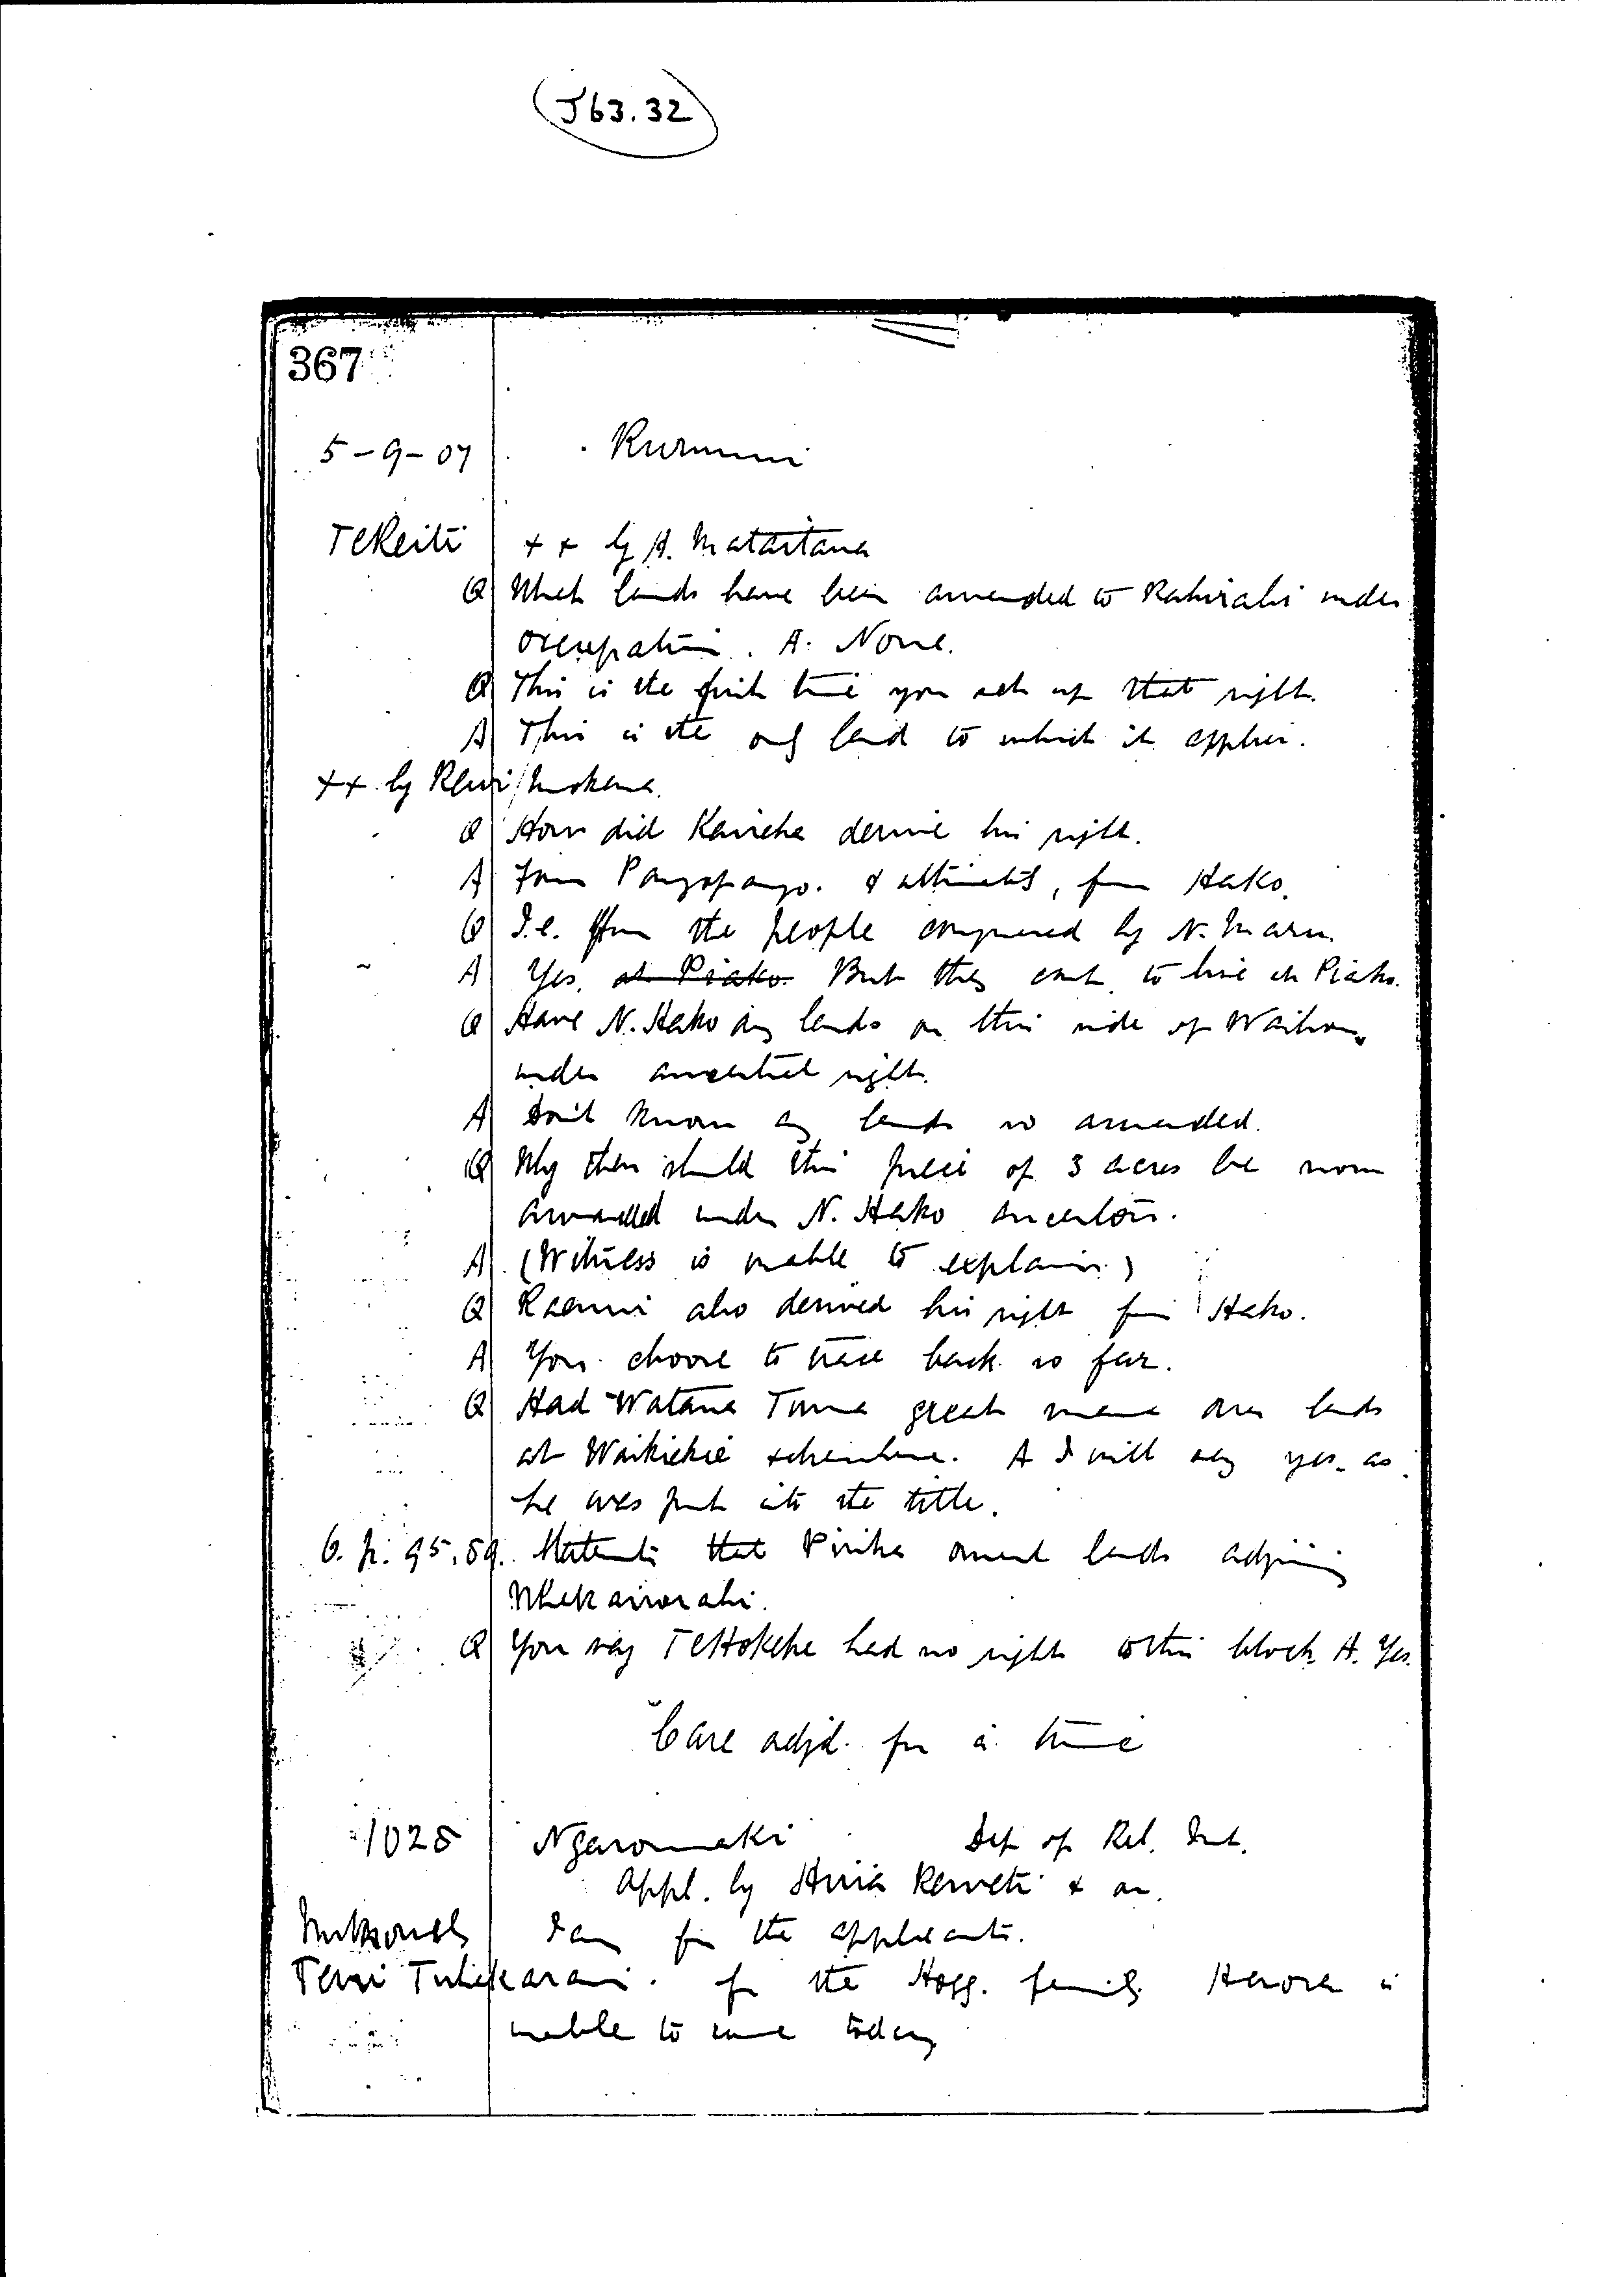 J63.32
367
5-9-07
Te Reiti ++ by H. Mataitaua
Q What lands have been awarded to Rahirahi under
occupation. A. None.
Q This is the first time you set up that right.
A This is the only land to which it applies.
++ by Rewi Mokena.
Q How did Kaireha derive his right.
A From Pangopango. & ultimately, from Hako.
Q I.e. from the people conquered by N. Maru.
A Yes, at Piako. But they came to live at Piako.
Q Have N. Hako any lands on this side of Waihou
under ancestral right.
A Don't know any lands so awarded.
Q Why then should this piece of 3 acres be now
awarded under N. Hako ancestors.
A (Witness is unable to explain)
Q also derived his right from Hako.
A You choose to trace back so far.
Q Had Watana Tuma great mana over lands
at Waikiekie & elsewhere. A I will say yes, as
he was put into the title.
that owned lands adjoining
Whekairorahi.
Q You say Te Hokehe had no right to this block A. Yes.
Case adjd. for a time
1025 Ngaromaki Def of Rel. Int.
Appl. by Hiria Rerweti & an.
I am for the applicants.
for the Hogg. family. Harora is
unable to come today